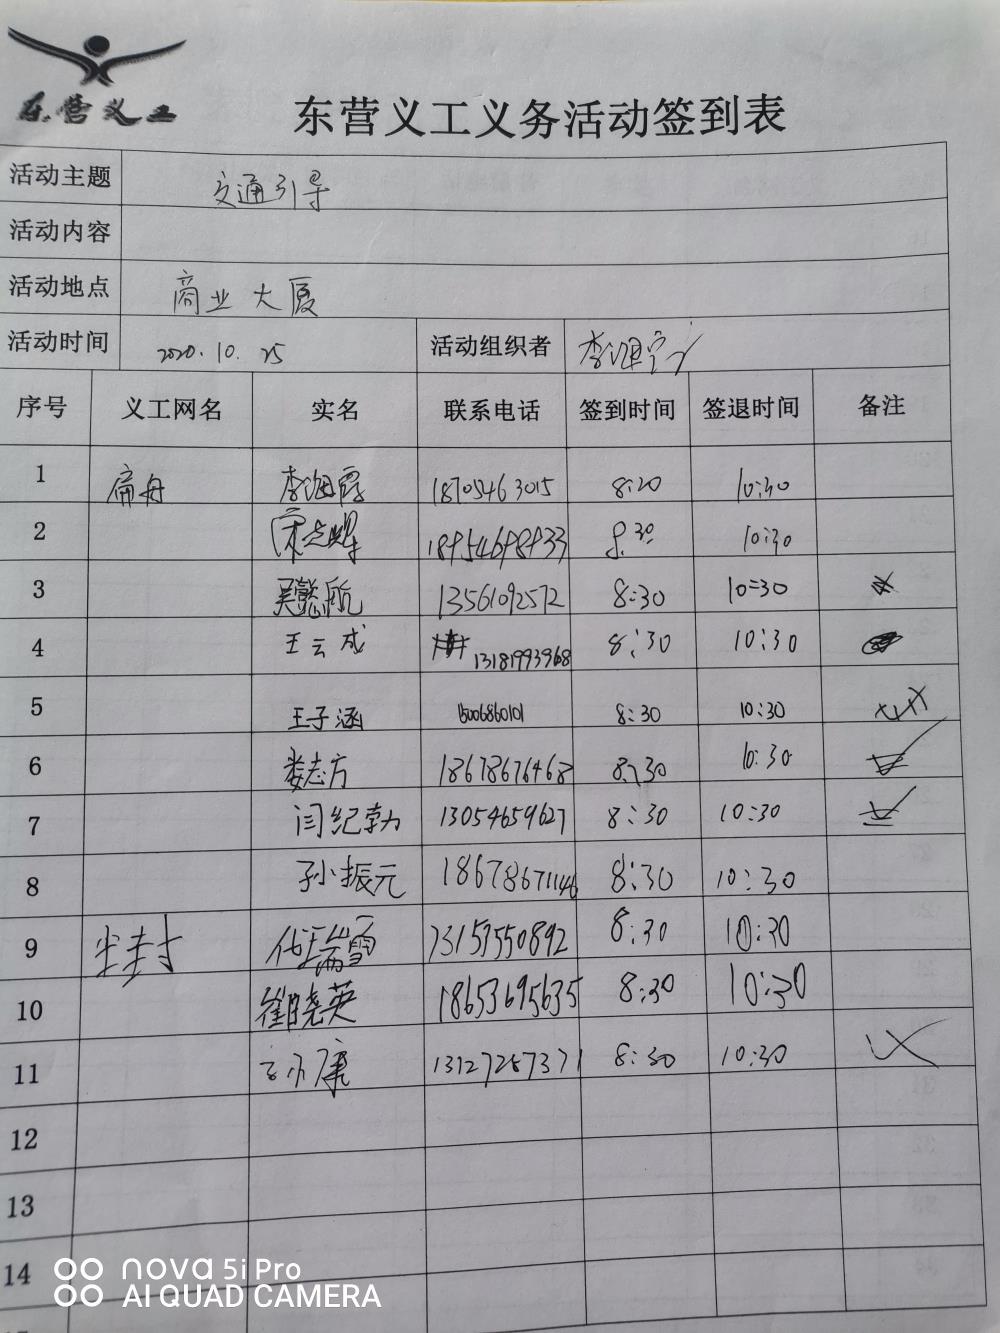 东营义工
东营义工义务活动签到表
活动主题 交通引导
活动内容
活动地点 商业大厦
活动时间 2020.10.25 活动组织者
序号 义工网名 实名 联系电话 签到时间 签退时间 备注
1 扁舟 李海霞 18705463015 8:20 10:30
2 宋志辉 8:30 10:30
3 吴懿航 13561092572 8:30 10=30
4 王云成 13181993968 8:30 10:30
5 王子涵 15006860101 8:30 10:30
6 娄志方 18678676468 8:30 10:30
7 闫纪勃 13054659627 8:30 10:30
8 孙振元 18678671146 8:30 10:30
9 尘封 代瑞雪 13153550892 8:30 10:30
10 崔晓英 18653695635 8:30 10:30
11 13127287371 8:30 10:30
12
13
14
nova 5i Pro
AI QUAD CAMERA